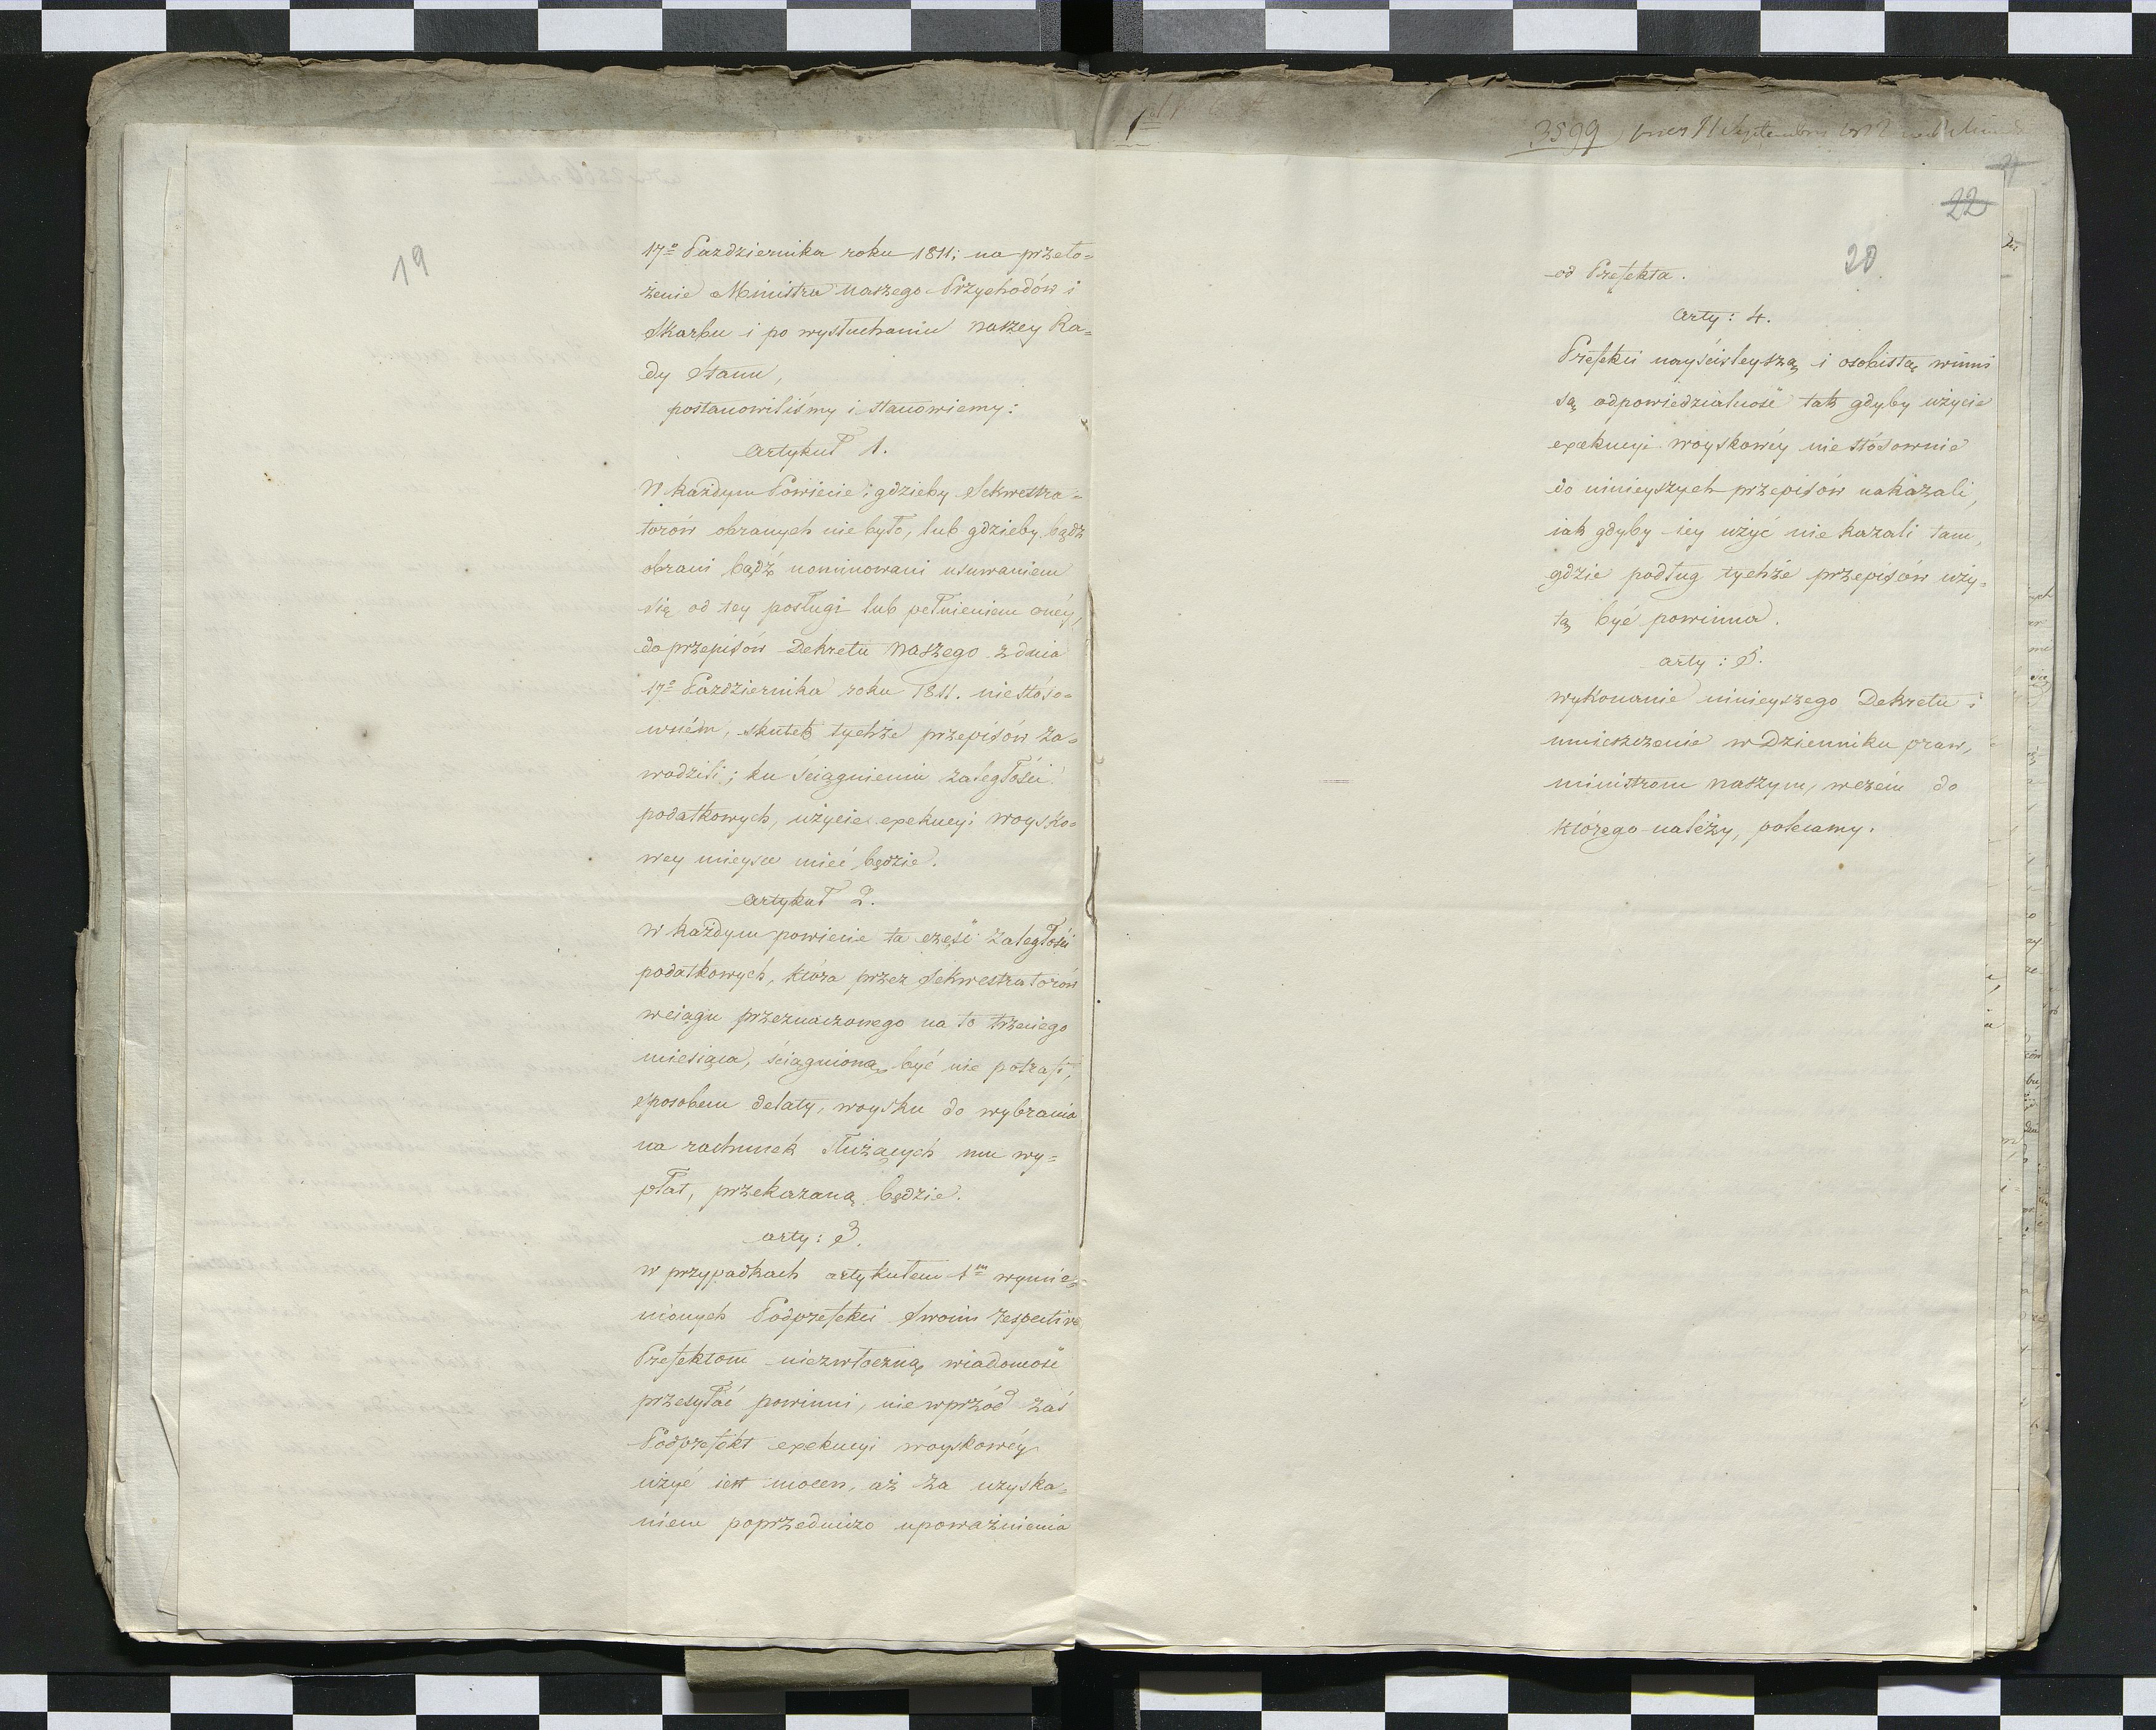 19
17º Pazdziernika roku 1811; na przeło=
żenie Ministra Naszego Przychodów i
Skarbu i po wysłuchaniu naszey Ra=
dy Stanu,
postanowiliśmy i stanowiemy:
Artykuł 1.
W każdym Powiecie; gdzieby Sekwestra=
torów obranych nie było, lub gdzieby bądź
obrani bądź nominowani usuwaniem
się od tey posługi lub pełnieniem onéy,
do przepisów Dekretu Naszego z dnia
17º Pazdziernika roku 1811. niestóso=
wném, skutek tychże przepisów za=
wodzili; ku ściągnieniu zaległości
podatkowych, użycie exekucyi woysko=
wey mieysce mieć będzie.
Artykuł 2.
W każdym powiecie ta część zaległości
podatkowych, która przez Sekwestratorów
wciągu przeznaczonego na to trzeciego
miesiąca, ściągnioną być nie potrafi,
sposobem delaty, woysku do wybrania
na rachunek służących mu wy=
płat, przekazaną będzie.
arty: 3.
w przypadkach artykułem 1m wymie=
nionych Podprefekci swoim respective
Prefektom niezwłoczną wiadomość
przesyłać powinni, nie wprzód zaś
Podprefekt exekucyi woyskowéy
użyć iest mocen, aż za uzyska=
niem poprzedniczo upoważnienia
3599
22
20
od Prefekta.
arty: 4.
Prefekci nayściśleyszą i osobistą winni
są odpowiedzialność tak gdyby użycie
exekucyi woyskowéy niestósownie
do ninieyszych przepisów nakazali,
iak gdyby iey użyć nie kazali tam,
gdzie podług tychże przepisów uży=
tą być powinna.
arty: 5.
wykonanie ninieyszego Dekretu i
umieszczenie w Dzienniku praw,
ministrom naszym, wczém do
którego należy, polecamy.